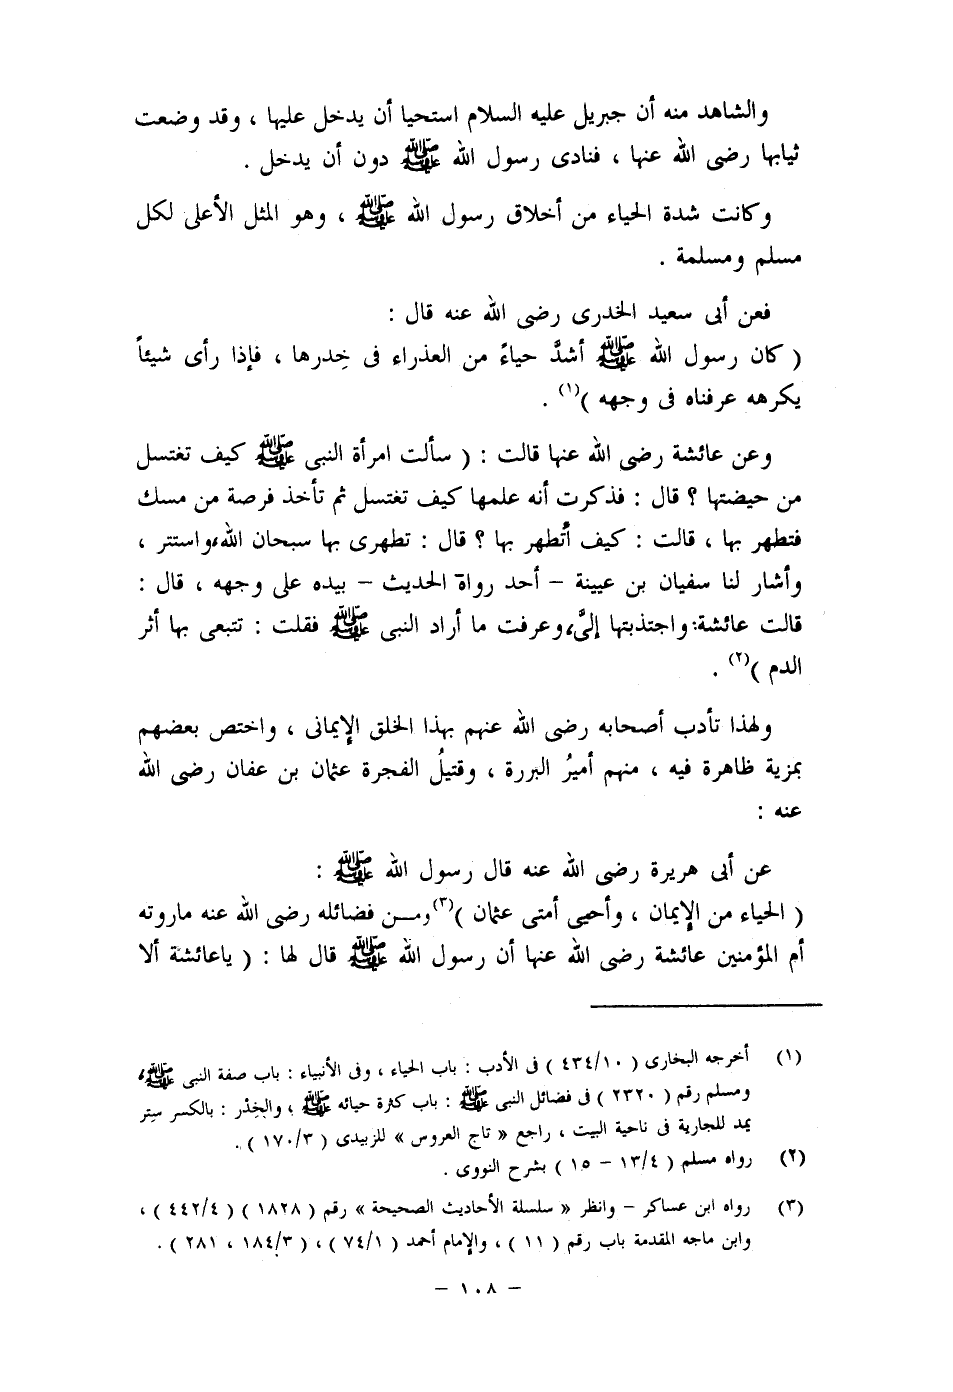 والشاهد منه أن جبريل عليه السلام استحيا أن يدخل عليها ، وقد وضعت
ثيابها رضى الله عنها ، فنادى رسول الله ﷺ دون أن يدخل .
وكانت شدة الحياء من أخلاق رسول الله ﷺ ، وهو المثل الأعلى لكل
مسلم ومسلمة .
فعن أبى سعيد الخدرى رضى الله عنه قال :
( كان رسول الله ﷺ أشدَّ حياءً من العذراء فى خِدرها ، فإذا رأى شيئاً
يكرهه عرفناه فى وجهه )(١) .
وعن عائشة رضى الله عنها قالت : ( سألت امرأة النبى ﷺ كيف تغتسل
من حيضتها ؟ قال : فذكرت أنه علمها كيف تغتسل ثم تأخذ فرصة من مسك
فتطهر بها ، قالت : كيف أتُطهر بها ؟ قال : تطهرى بها سبحان الله، واستتر ،
وأشار لنا سفيان بن عيينة – أحد رواة الحديث – بيده على وجهه ، قال :
قالت عائشة: واجتذبتها إلىَّ، وعرفت ما أراد النبى ﷺ فقلت : تتبعى بها أثر
الدم )(٢) .
ولهذا تأدب أصحابه رضى الله عنهم بهذا الخلق الإيمانى ، واختص بعضهم
بمزية ظاهرة فيه ، منهم أميرُ البررة ، وقتيلُ الفجرة عثمان بن عفان رضى الله
عنه :
عن أبى هريرة رضى الله عنه قال رسول الله ﷺ :
( الحياء من الإيمان ، وأحيى أمتى عثمان )(٣) ومــن فضائله رضى الله عنه ماروته
أم المؤمنين عائشة رضى الله عنها أن رسول الله ﷺ قال لها : ( ياعائشة ألا
(١) أخرجه البخارى ( ٤٣٤/١٠ ) فى الأدب : باب الحياء ، وفى الأنبياء : باب صفة النبى ﷺ،
ومسلم رقم ( ٢٣٢٠ ) فى فضائل النبى ﷺ : باب كثرة حيائه ﷺ ؛ والخِدْر : بالكسر سِتر
يمد للجارية فى ناحية البيت ، راجع « تاج العروس » للزبيدى ( ١٧٠/٣ ) .
(٢) رواه مسلم ( ١٣/٤ – ١٥ ) بشرح النووى .
(٣) رواه ابن عساكر – وانظر « سلسلة الأحاديث الصحيحة » رقم ( ١٨٢٨ ) ( ٤٤٢/٤ ) ،
وابن ماجه المقدمة باب رقم ( ١١ ) ، والإمام أحمد ( ٧٤/١ ) ، ( ١٨٤/٣ ، ٢٨١ ) .
– ١٠٨ –